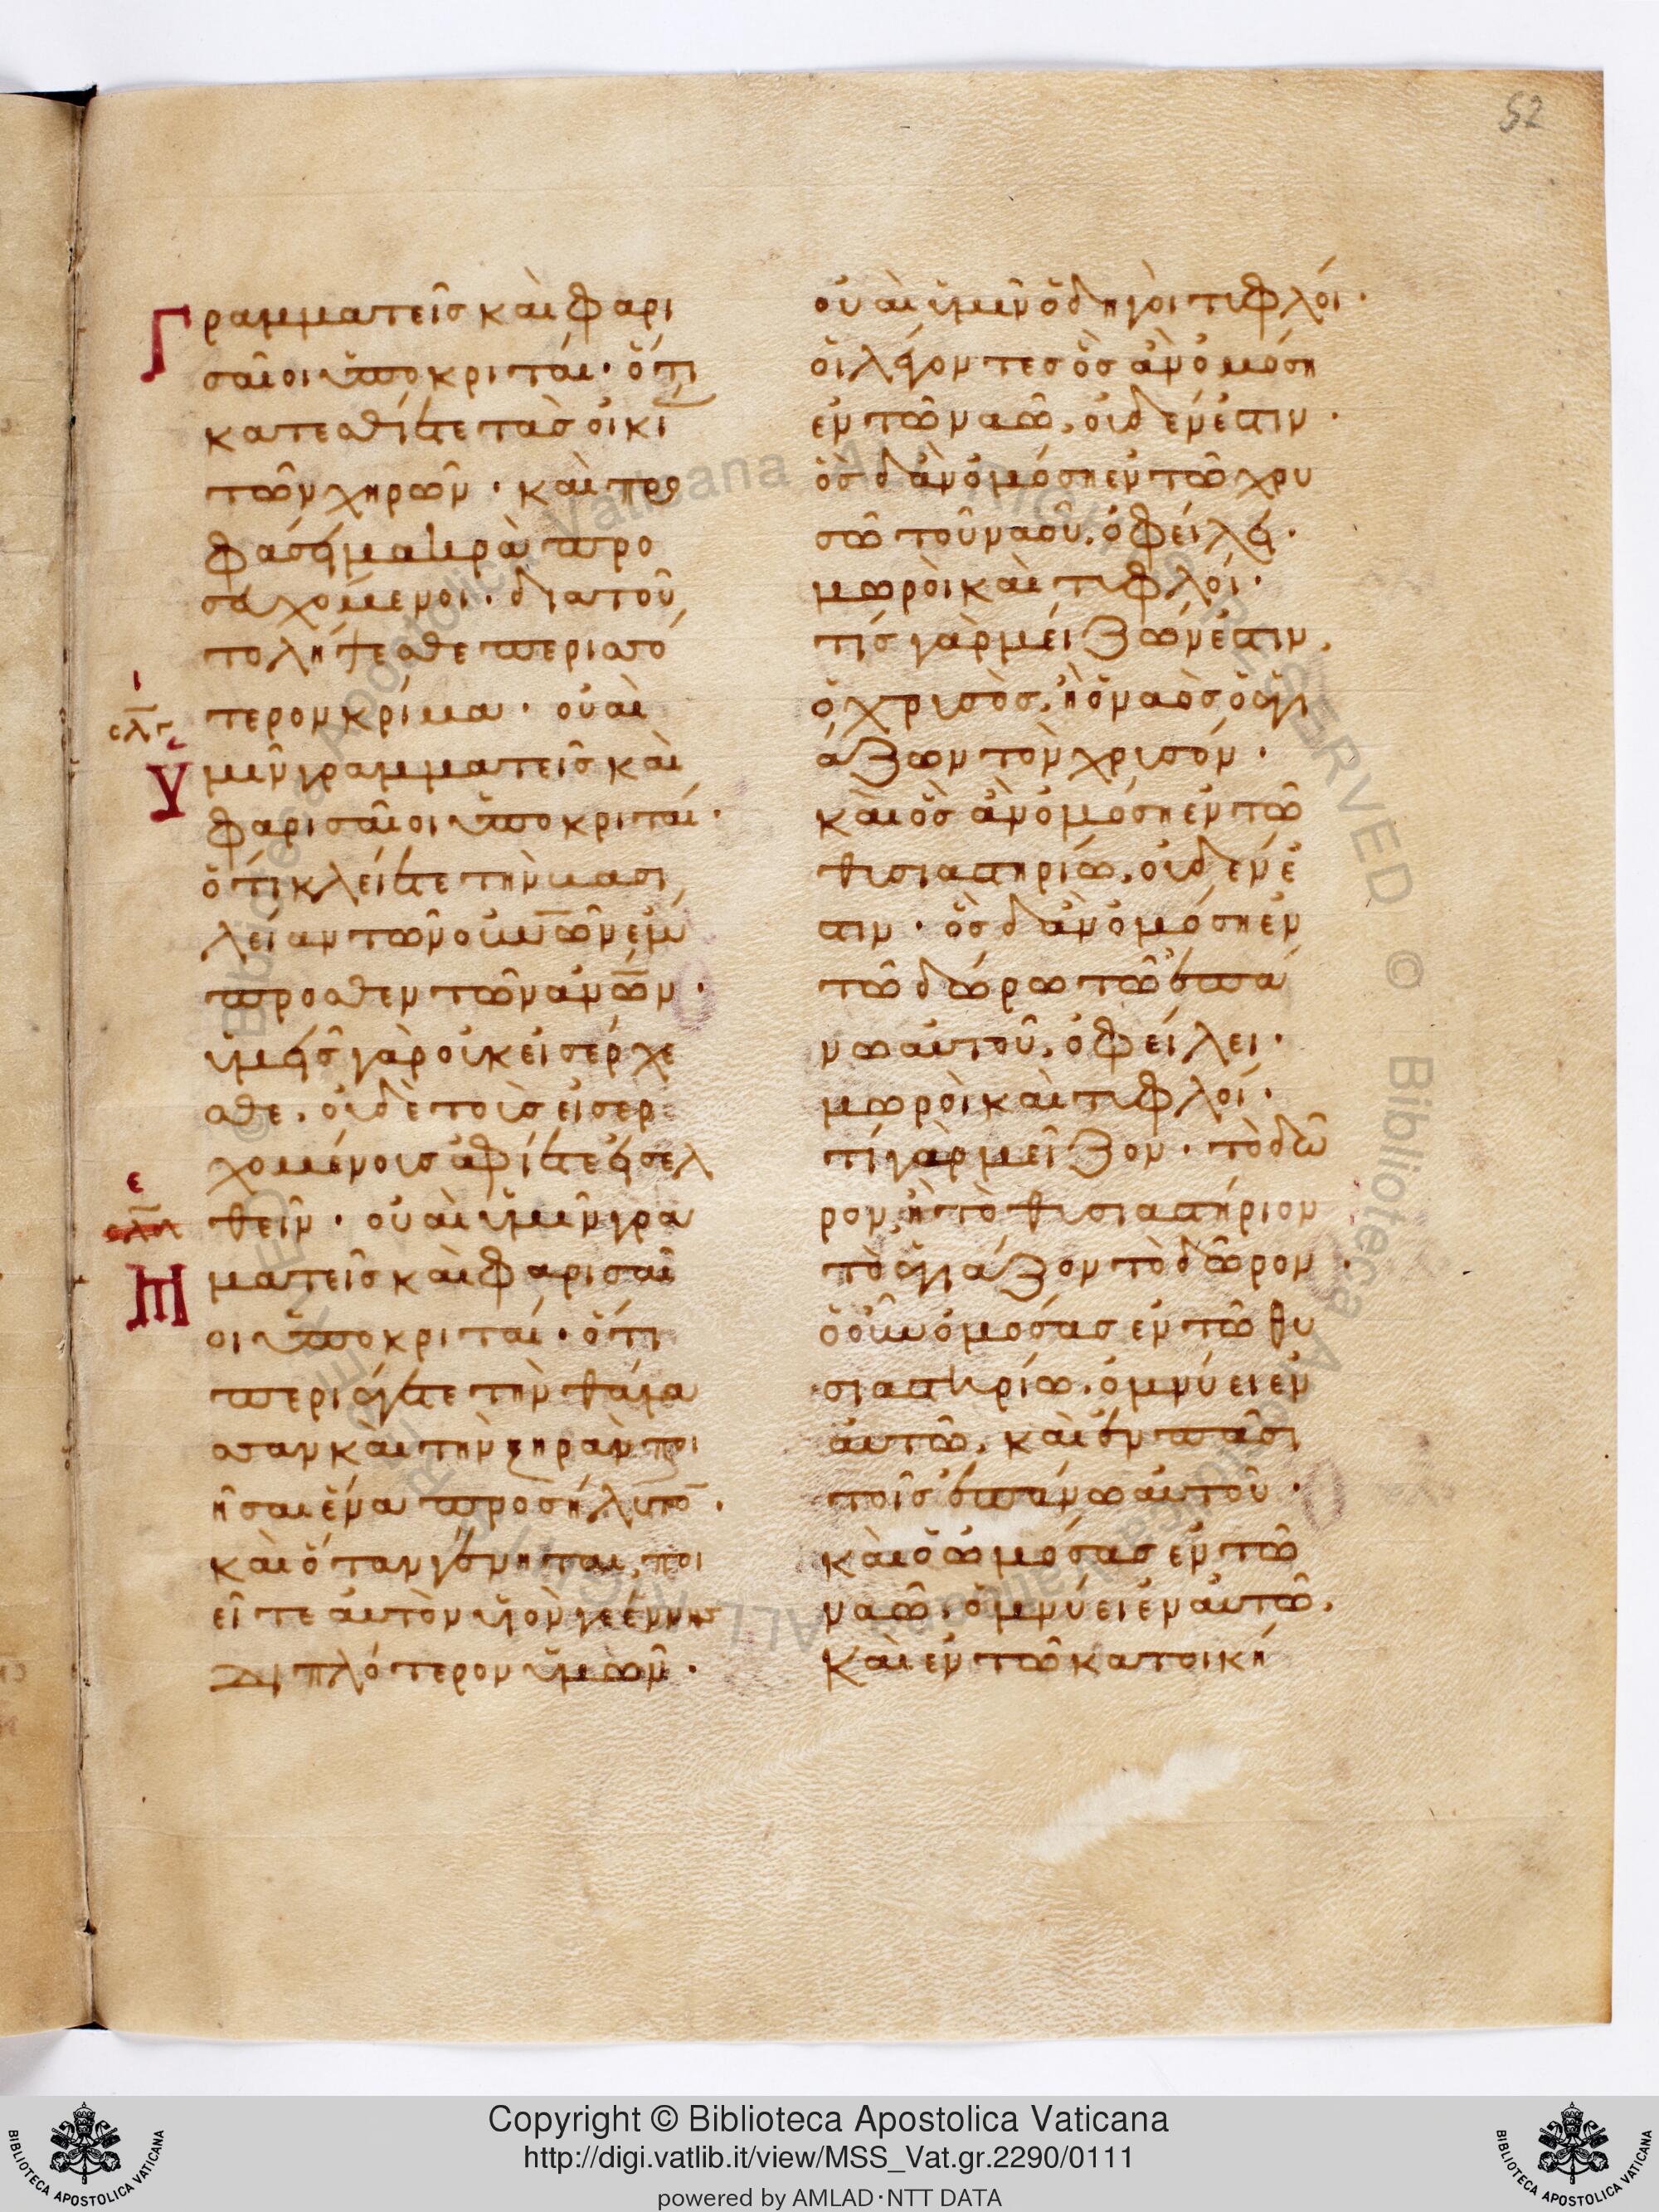 52
Γραμματεῖς καὶ φαρι
σαῖοι ὑποκριταί· ὅτι
κατεσθίετε τὰς οἰκί
τῶν χηρῶν· καὶ προ
φάσει μακρὰ προ
σευχόμενοι· διατοῦ
το λήψεσθε περισσό
τερον κρίμα· οὐαὶ
Ὑμῖν γραμματεῖς καὶ
φαρισαῖοι ὑποκριταί·
ὅτι κλείετε τὴν βασι
λείαν τῶν οὐνῶν ἔμ
προσθεν τῶν ἀνῶν·
ὑμεῖς γὰρ οὐκ εἰσέρχε
σθε, οὐδὲ τοὺς εἰσερ
χομένους ἀφίετε εἰσελ
θεῖν· οὐαὶ ὑμῖν γρα
Μματεῖς καὶ φαρισαῖ
οι ὑποκριταί· ὅτι
περιάγετε τὴν θάλα
σσαν καὶ τὴν ξηρὰν ποι
ῆσαι ἕνα προσήλυτο̄·
καὶ ὅταν γένηται, ποι
εῖτε αὐτὸν υἱὸν γεέννης
διπλότερον ὑμῶν·
οὐαὶ ὑμῖν ὁδηγοὶ τυφλοί·
οἱ λέγοντες ὃς ἂν ὀμόση
ἐν τῶ ναῶ, οὐδέν ἐστιν·
ὃς δ' ἂν ὀμόση ἐν τῶ χρυ
σῶ τοῦ ναοῦ, ὀφείλει·
μωροὶ καὶ τυφλοί·
τίς γὰρ μείζων ἐστιν,
ὁ χρυσὸς, ἢ ὁ ναὸς ὁ ἁγι
άζων τὸν χρυσόν·
καὶ ὃς ἂν ὀμόση ἐν τῶ
θυσιαστηρίω, οὐδέν ἐ
στιν· ὃς δ' ἂν ὀμόση ἐν
τῶ δώρω τῶ ἐπά
νω αὐτοῦ, ὀφείλει·
μωροὶ καὶ τυφλοί·
τί γὰρ μεῖζον· τὸ δῶ
ρον, ἢ τὸ θυσιαστήριον
τὸ ἁγιάζον τὸ δῶρον·
ὁ οὖν ὀμόσας ἐν τῶ θυ
σιαστηρίω, ὀμνύει ἐν
αὐτῶ, καὶ ἐν πᾶσι
τοῖς ἐπάνω αὐτοῦ·
καὶ ὁ ὠμόσας ἐν τῶ
ναῶ, ὀμνύει ἐν αὐτῶ,
καὶ ἐν τῶ κατοική
Copyright © Biblioteca Apostolica Vaticana
http://digi.vatlib.it/view/MSS_Vat.gr.2290/0111
powered by AMLAD·NTT DATA
BIBLIOTECA APOSTOLICA VATICANA
BIBLIOTECA APOSTOLICA VATICANA